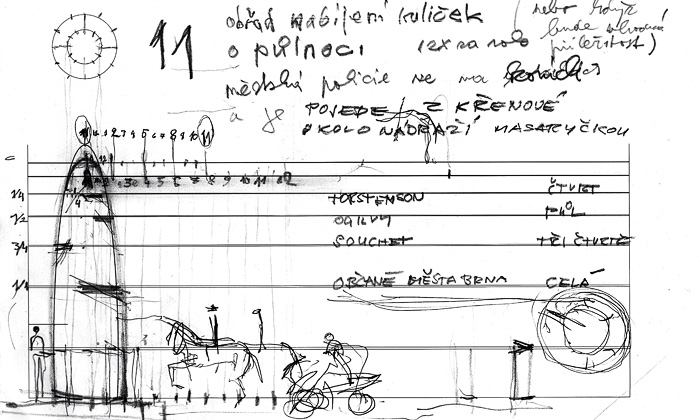 11
obřad nabíjení kuliček
(nebo když
bude vhodná
příležitost)
o půlnoci 12x za rok
městská policie ve na
a je POVEDE Z KŘENOVÉ
OKOLO NÁDRAŽÍ MASARYČKOU
1 2 3 4 5 6 7 8 9 10 11
1 2 3 4 5 6 7 8 9 10 11 12
1/4 TORSTENSON ČTVRT
1/2 OGILVY PŮL
3/4 SOUCHET TŘI ČTVRTĚ
1/1 OBČANÉ MĚSTA BRNA CELÁ